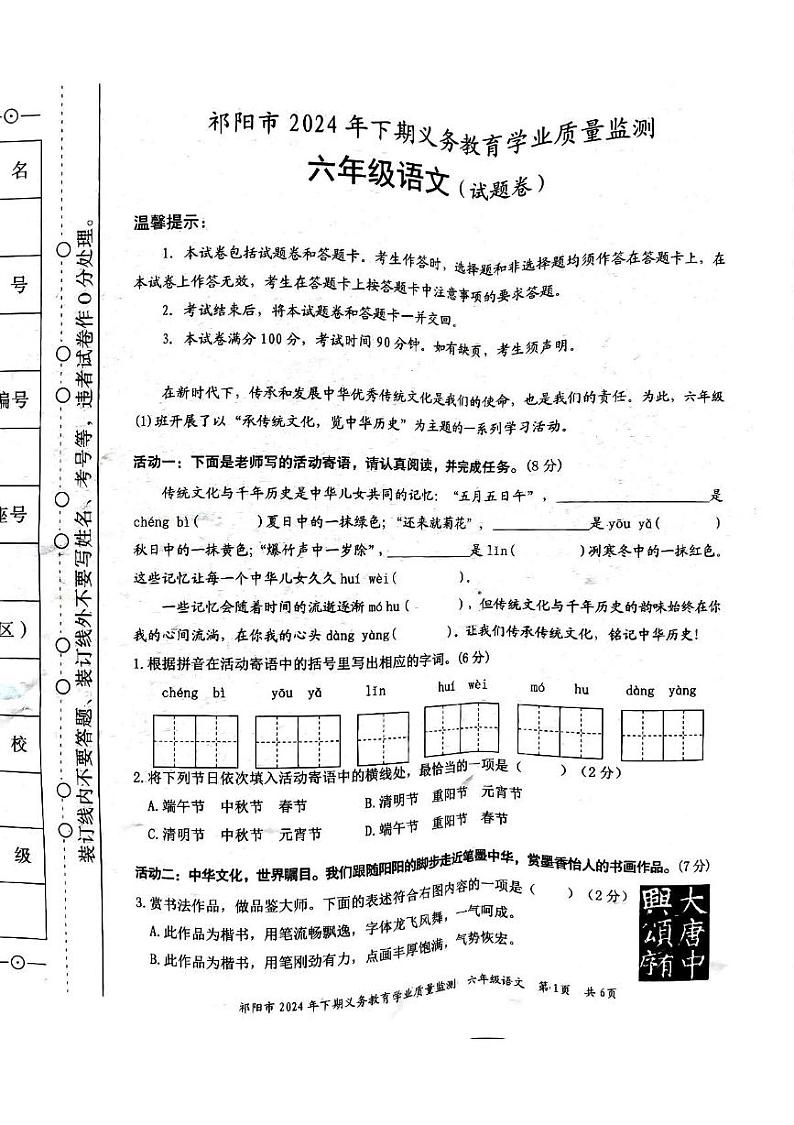 祁阳市 2024 年下期义务教育学业质量监测
六年级语文（试题卷）
温馨提示：
1. 本试卷包括试题卷和答题卡。考生作答时，选择题和非选择题均须作答在答题卡上，在
本试卷上作答无效，考生在答题卡上按答题卡中注意事项的要求答题。
2. 考试结束后，将本试题卷和答题卡一并交回。
3. 本试卷满分 100 分，考试时间 90 分钟。如有缺页，考生须声明。
在新时代下，传承和发展中华优秀传统文化是我们的使命，也是我们的责任。为此，六年级
(1)班开展了以“承传统文化，览中华历史”为主题的一系列学习活动。
活动一：下面是老师写的活动寄语，请认真阅读，并完成任务。(8 分)
传统文化与千年历史是中华儿女共同的记忆：“五月五日午”，____________________是
chéng bì(　　　)夏日中的一抹绿色；“还来就菊花”，____________是 yōu yǎ(　　　)
秋日中的一抹黄色；“爆竹声中一岁除”，__________是 lǐn(　　　)冽寒冬中的一抹红色。
这些记忆让每一个中华儿女久久 huí wèi(　　　)。
一些记忆会随着时间的流逝逐渐 mó hu（　　　），但传统文化与千年历史的韵味始终在你
我的心间流淌，在你我的心头 dàng yàng(　　　)。让我们传承传统文化，铭记中华历史！
1. 根据拼音在活动寄语中的括号里写出相应的字词。(6 分)
chéng bì　yōu yǎ　lǐn　huí wèi　mó hu　dàng yàng
2. 将下列节日依次填入活动寄语中的横线处，最恰当的一项是（　　）(2 分)
A. 端午节　中秋节　春节　B. 清明节　重阳节　元宵节
C. 清明节　中秋节　元宵节　D. 端午节　重阳节　春节
活动二：中华文化，世界瞩目。我们跟随阳阳的脚步走近笔墨中华，赏墨香怡人的书画作品。(7 分)
3. 赏书法作品，做品鉴大师。下面的表述符合右图内容的一项是（　　）(2 分)
A. 此作品为楷书，用笔流畅飘逸，字体龙飞凤舞，一气呵成。
B. 此作品为楷书，用笔刚劲有力，点画丰厚饱满，气势恢宏。
大唐中
興頌有
序
祁阳市 2024 年下期义务教育学业质量监测　六年级语文　第 1 页　共 6 页
装订线内不要答题、装订线外不要写姓名、考号等，违者试卷作 0 分处理。
名
号
编号
座号
区）
校
级